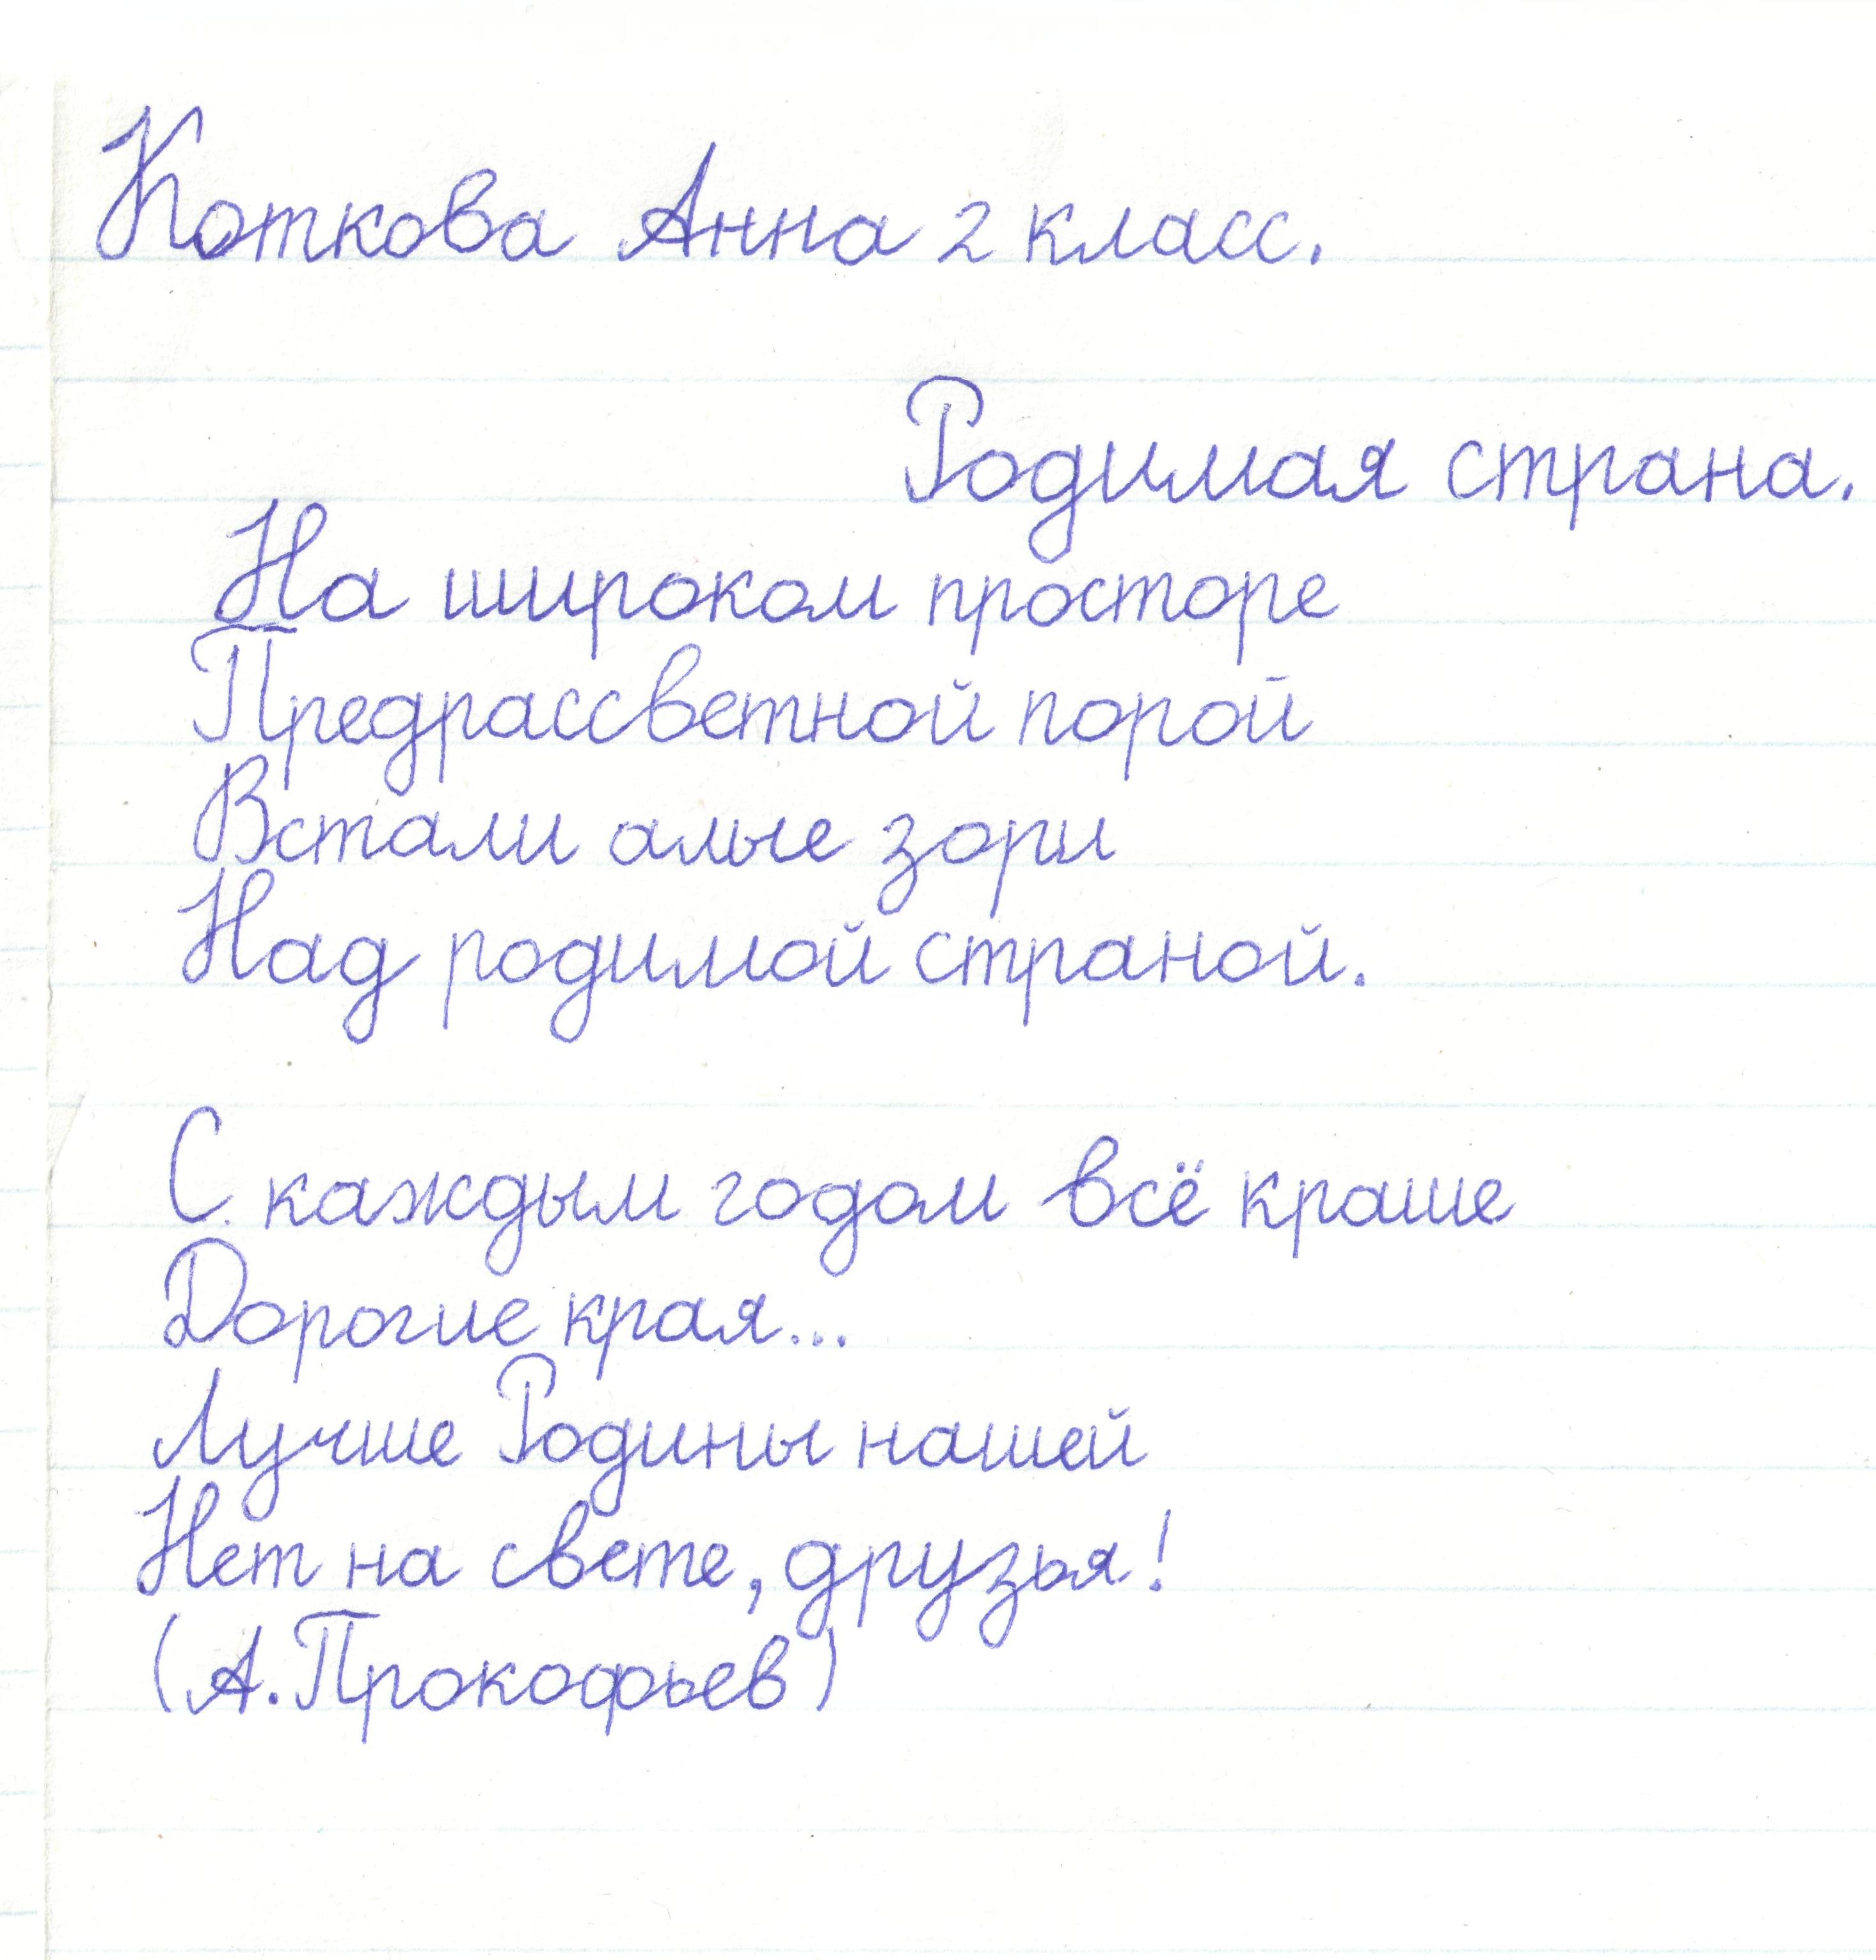 Коткова Анна 2 класс.
Родимая страна.
На широком просторе
Предрассветной порой
Встали алые зори
Над родимой страной.
С каждым годом всё краше
Дорогие края...
Лучше Родины нашей
Нет на свете, друзья!
(А. Прокофьев)